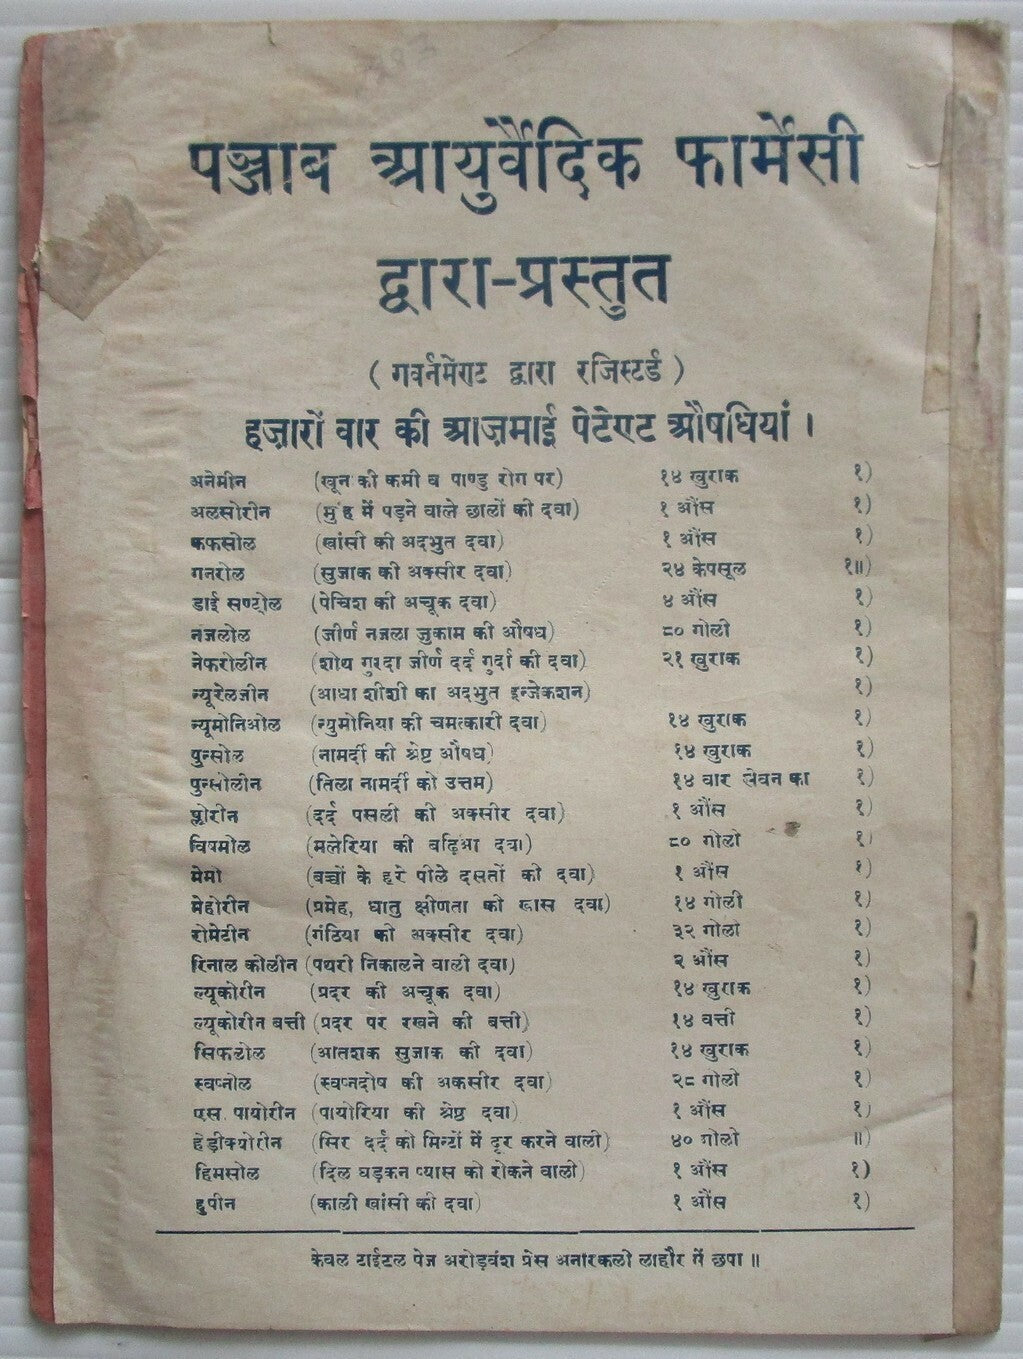 पञ्जाब आयुर्वैदिक फार्मेसी
द्वारा-प्रस्तुत
( गवर्नमेण्ट द्वारा रजिस्टर्ड )
हज़ारों वार की आज़माई पेटेण्ट औषधियां ।
अनेमीन (खून की कमी व पाण्डु रोग पर) १४ खुराक १)
अलसोरीन (मुंह में पड़ने वाले छालों की दवा) १ औंस १)
कफसोल (खांसी की अदभुत दवा) १ औंस १)
गनरोल (सुजाक की अक्सीर दवा) २४ केपसूल १॥)
डाई सण्ट्रोल (पेचिश की अचूक दवा) ४ औंस १)
नज़लोल (जीर्ण नज़ला जुकाम की औषध) ८० गोली १)
नेफरोलीन (शोथ गुरदा जीर्ण दर्द गुर्दा की दवा) २१ खुराक १)
न्यूरेलजीन (आधा शीशी का अदभुत इन्जेकशन) १)
न्यूमोनिओल (न्युमोनिया की चमत्कारी दवा) १४ खुराक १)
पुन्सोल (नामर्दी की श्रेष्ट औषध) १४ खुराक १)
पुन्सोलीन (तिला नामर्दी को उत्तम) १४ वार सेवन का १)
प्लोरीन (दर्द पसली की अक्सीर दवा) १ औंस १)
विषमोल (मलेरिया की बढ़िआ दवा) ८० गोली १)
मेमो (बच्चों के हरे पीले दस्तों की दवा) १ औंस १)
मेहोरीन (प्रमेह, धातु क्षीणता की खास दवा) १४ गोली १)
रोमेटीन (गंठिया की अक्सीर दवा) ३२ गोली १)
रिनाल कोलीन (पथरी निकालने वाली दवा) २ औंस १)
ल्यूकोरीन (प्रदर की अचूक दवा) १४ खुराक १)
ल्यूकोरीन बत्ती (प्रदर पर रखने की बत्ती) १४ वत्ती १)
सिफलोल (आतशक सुजाक की दवा) १४ खुराक १)
स्वप्नोल (स्वप्नदोष की अकसीर दवा) २८ गोली १)
एस. पायोरीन (पायोरिया की श्रेष्ठ दवा) १ औंस १)
हेडीक्योरीन (सिर दर्द को मिन्टों में दूर करने वाली) ४० गोली ॥)
हिमसोल (दिल धड़कन प्यास को रोकने वाली) १ औंस १)
हुपीन (काली खांसी की दवा) १ औंस १)
केवल टाईटल पेज अरोड़वंश प्रेस अनारकली लाहौर में छपा ॥